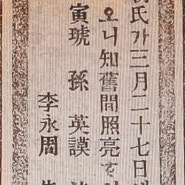 氏가三月二十七日
오니知舊間照亮을
寅琥 孫 英謨
李永周